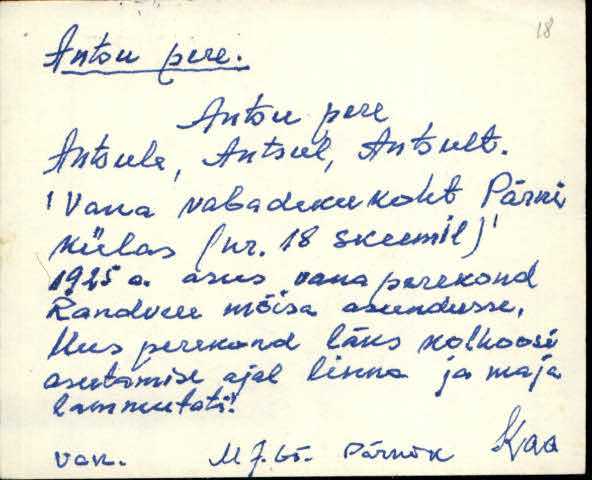 18
Antsu pere.
Antsu pere
Antsule, Antsul, Antsult.
'Vana vabadikukoht Pärni
külas (nr. 18 skeemil)'
1925 a. asus vana perekond
Randvee mõisa asundusse.
Uus perekond läks kolhoosi
asutamise ajal linna ja maja
lammutati.
Pärnik Kaa